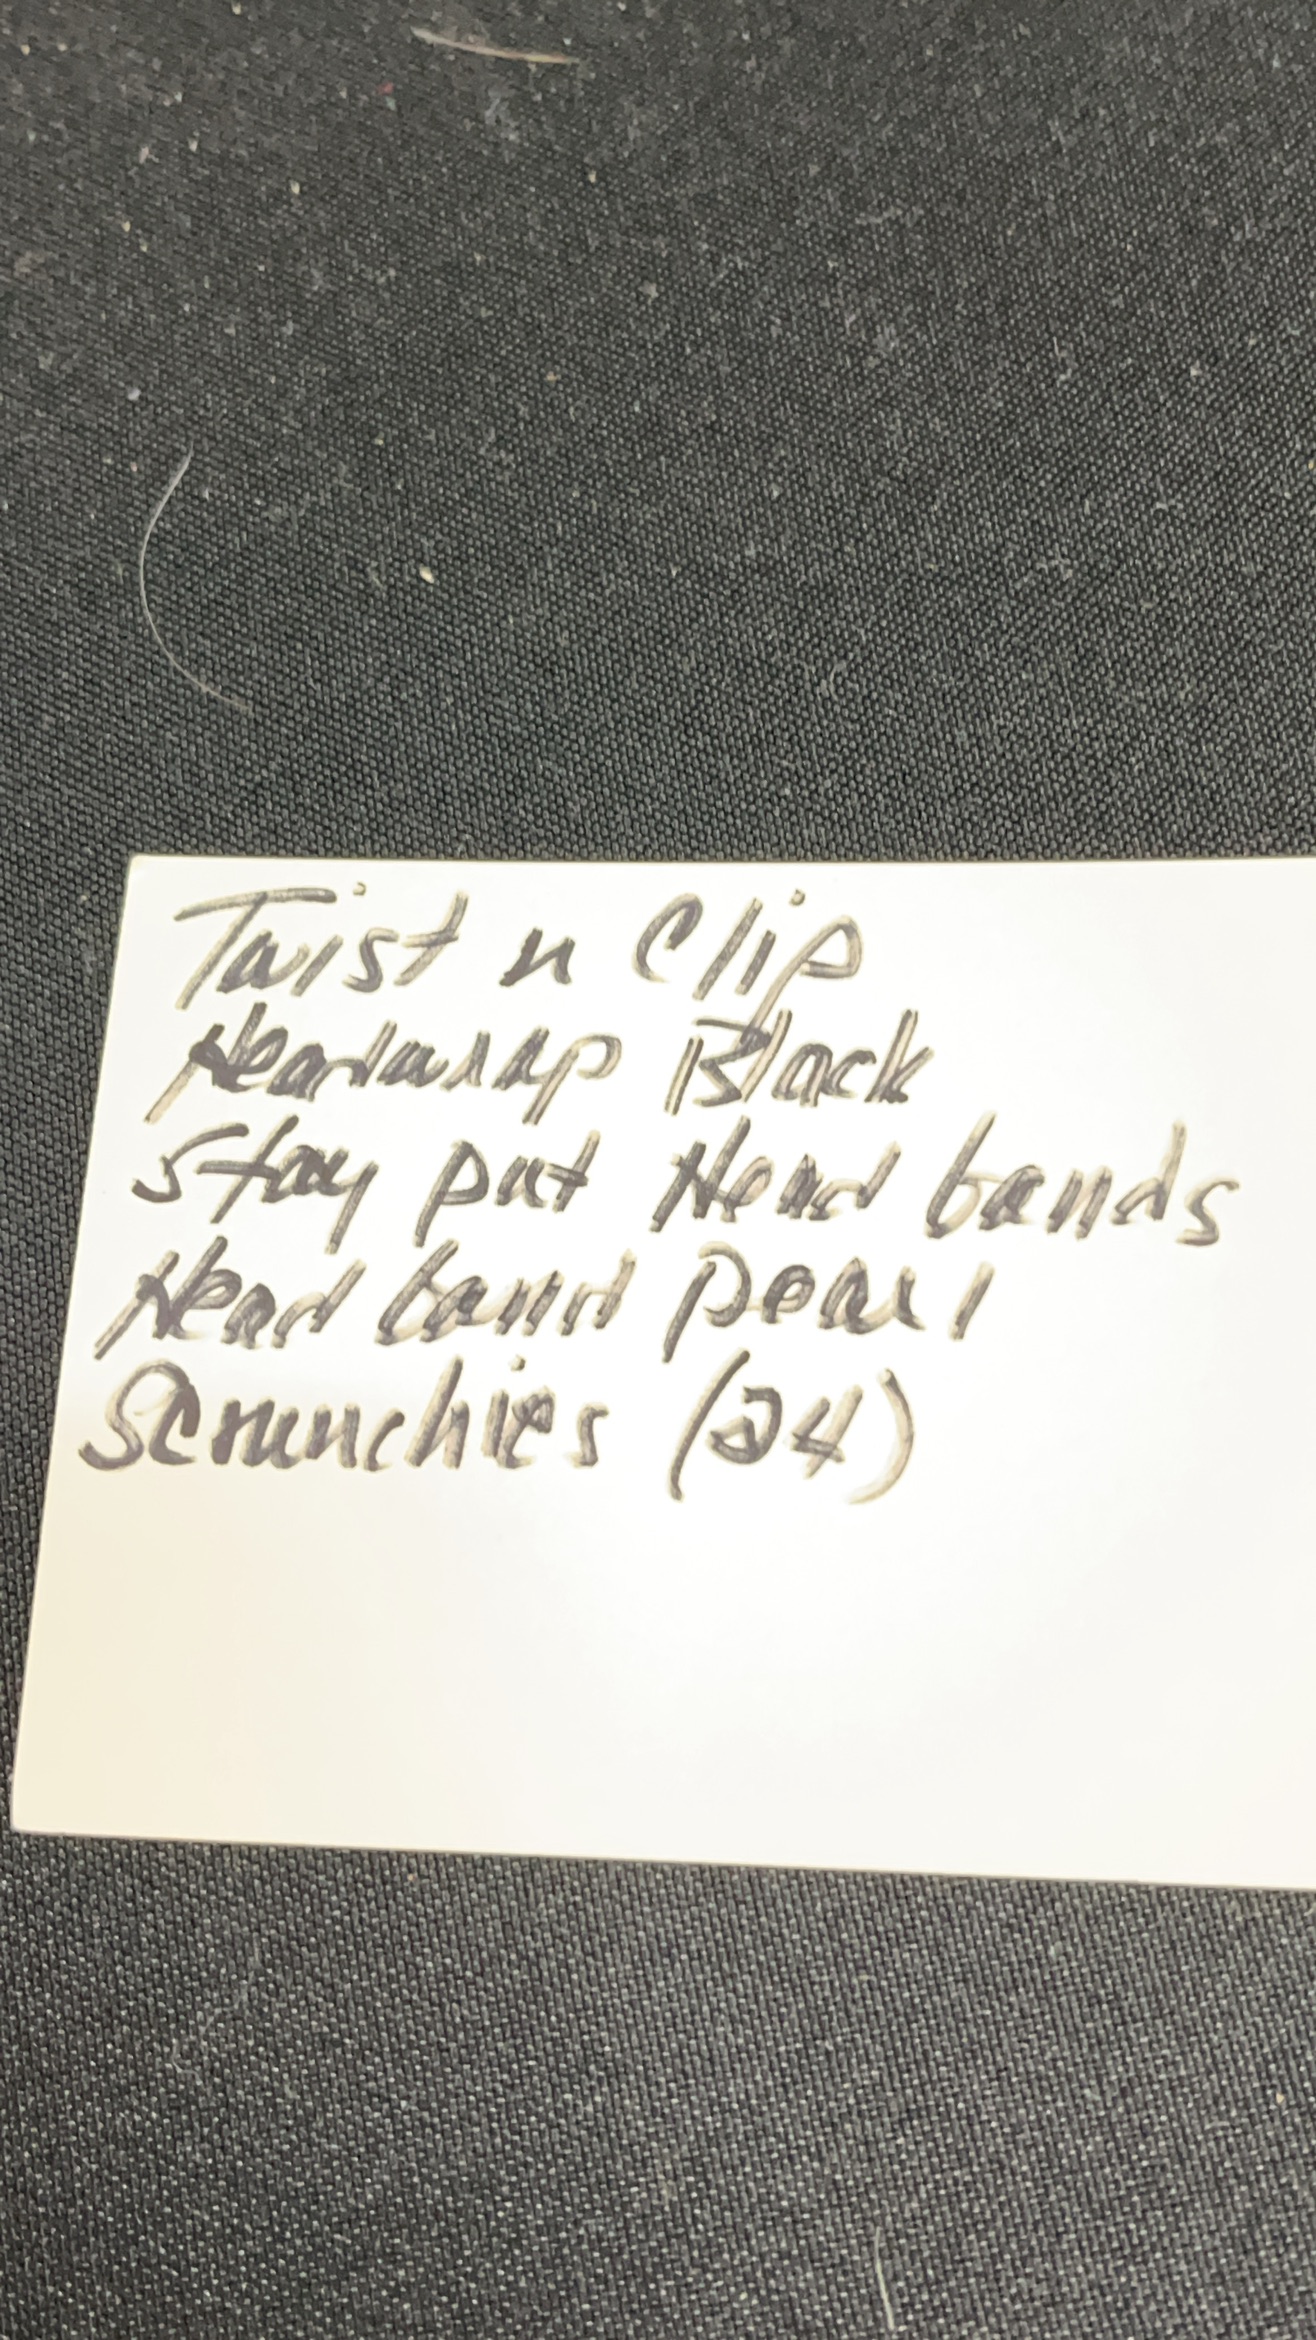 Twist n Clip
Headwrap Black
Stay put Head bands
Head band pearl
Scrunchies (24)